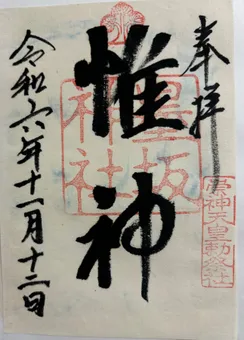 奉拝
崇神天皇勅祭社
惟神
墨坂神社
令和六年十一月十二日